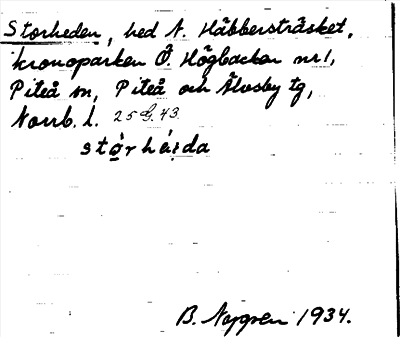 Storheden, hed N. Häbbersträsket,
kronoparken Ö. Högbacken nr 1,
Piteå sn, Piteå och Älvsby tg,
Norrb. l. 25 G. 43
stò̱rhéi̯da
B. Noggren 1934.